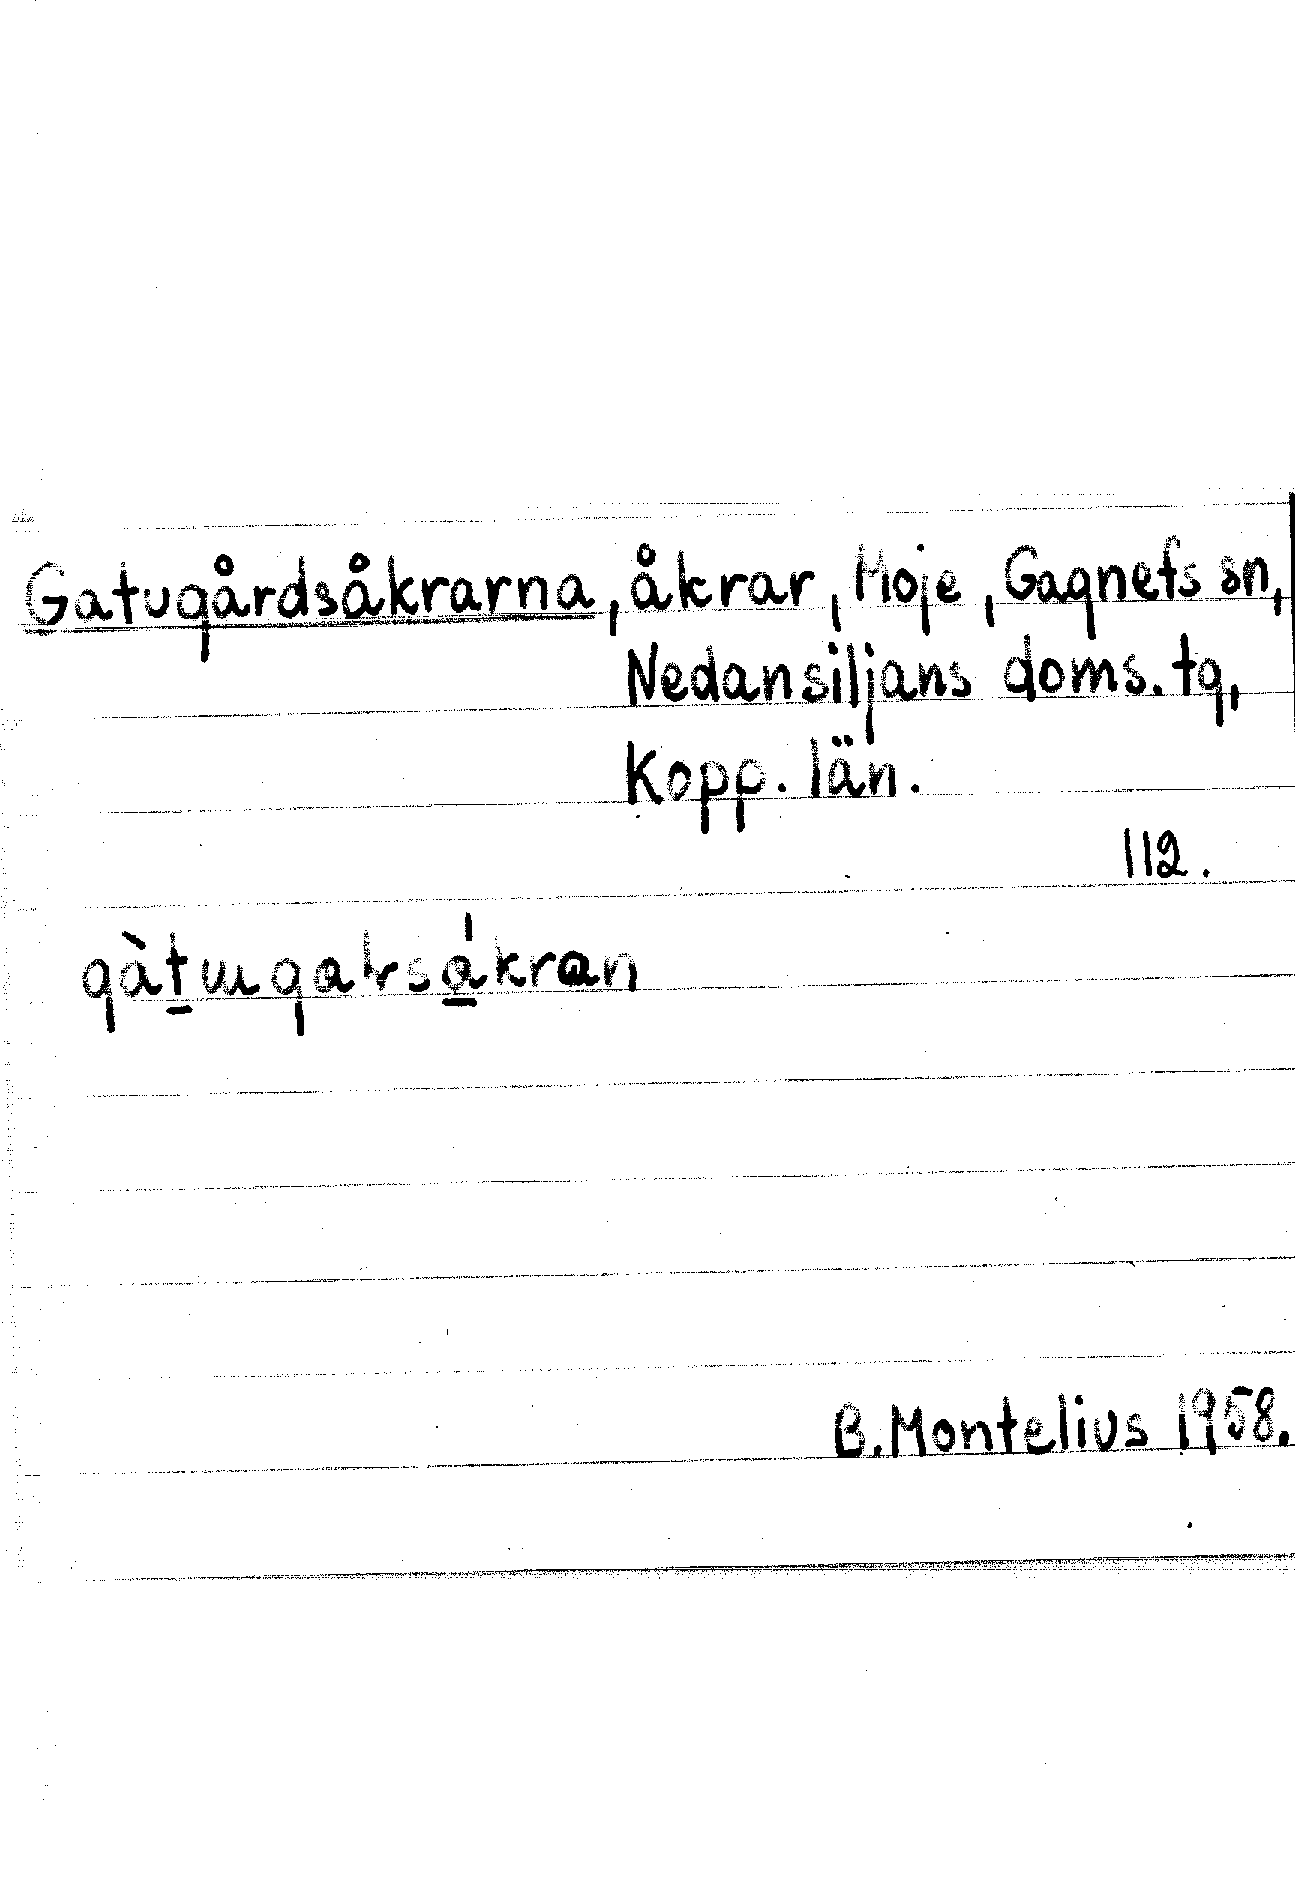 Gatugårdsåkrarna, åkrar, Moje, Gagnefs sn,
Nedansiljans doms. tg,
Kopp. län.
112.
B. Montelius 1958.